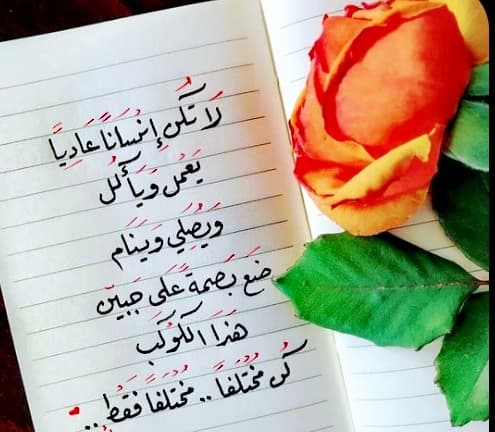 لَا تَكُن إِنْسَانًا عَادِيًا
يَعْمَل وَيَأكُل
وَيُصَلِي وَيَنَام
ضَع بَصمة عَلَى جَبين
هَذَا الكَوكَب
كُن مُختَلفًا .. مُختَلفًا فَقَط ..